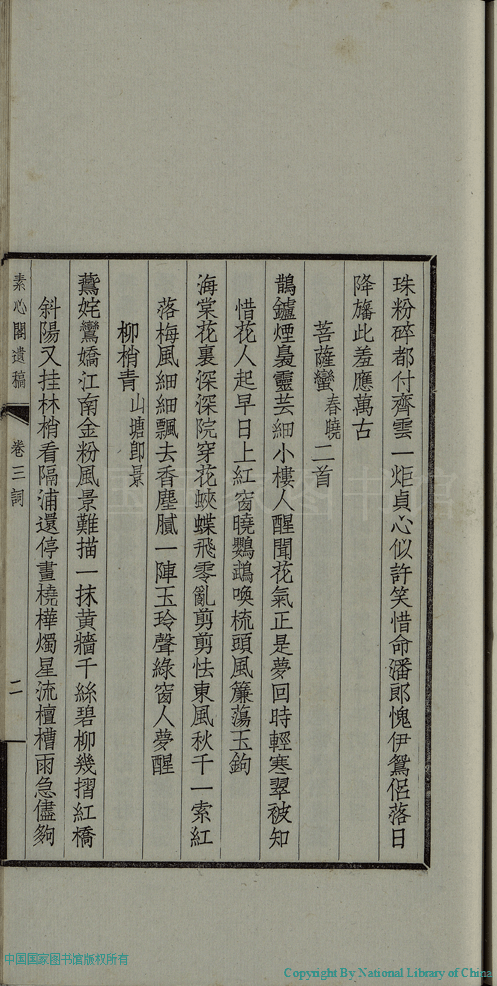 珠粉碎都付齊雲一炬貞心似許笑惜命潘郎愧伊鴛侶落日
降旛此羞應萬古
菩薩蠻春曉二首
鵲鑪煙裊靈芸細小樓人醒聞花氣正是夢回時輕寒翠被知
惜花人起早日上紅窗曉鸚鵡喚梳頭風簾蕩玉鉤
海棠花裏深深院穿花蛺蝶飛零亂剪剪怯東風秋千一索紅
落梅風細細飄去香塵膩一陣玉玲聲綠窗人夢醒
柳梢青山塘卽景
鷰姹鸞嬌江南金粉風景難描一抹黃牆千絲碧柳幾摺紅橋
斜陽又挂林梢看隔浦還停畫橈樺燭星流檀槽雨急儘夠
素心閣遺稿
卷三詞
二
中国国家图书馆版权所有
Copyright By National Library of China